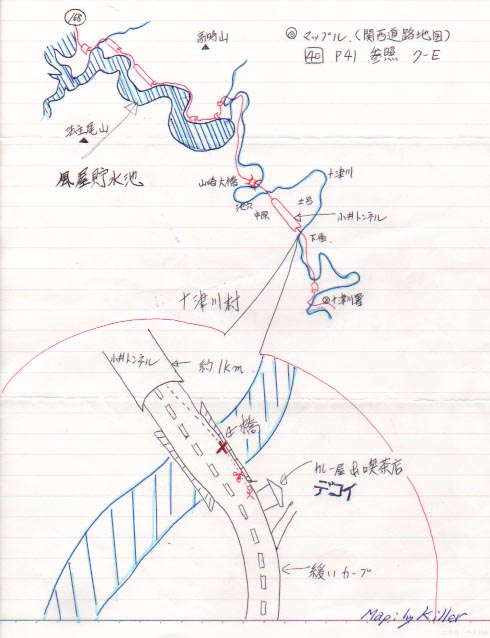 168
赤崎山
◎ マップル.(関西道路地図)
40 P41 参照 ク-E
法主尾山
風屋貯水池
山崎大橋
十津川
池穴
中原
小井トンネル
下番
十津川署
十津川村
小井トンネル
約1km
橋
カレー屋 喫茶店
デコイ
緩いカーブ
Map: by Killer